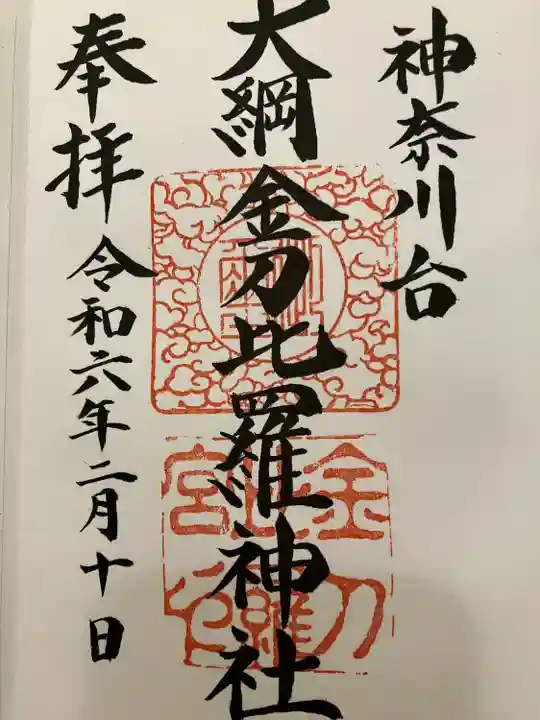 神奈川台
大綱金刀比羅神社
奉拝
令和六年二月十日
金刀比羅宮